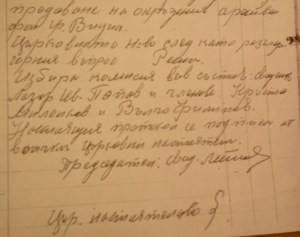 предаване на окръжния архив
фон гр. Видин.
Църковното н-во след като разгле
горния въпрос Реши:
Избира комисия във състав: Свещеник
Лазар Ив. Попов и членове: Кръсто
и Вълчо
Настоящия протокол се подписа от
всички църковни настоятели.
Председател: Свещ.
Цър. настоятелство